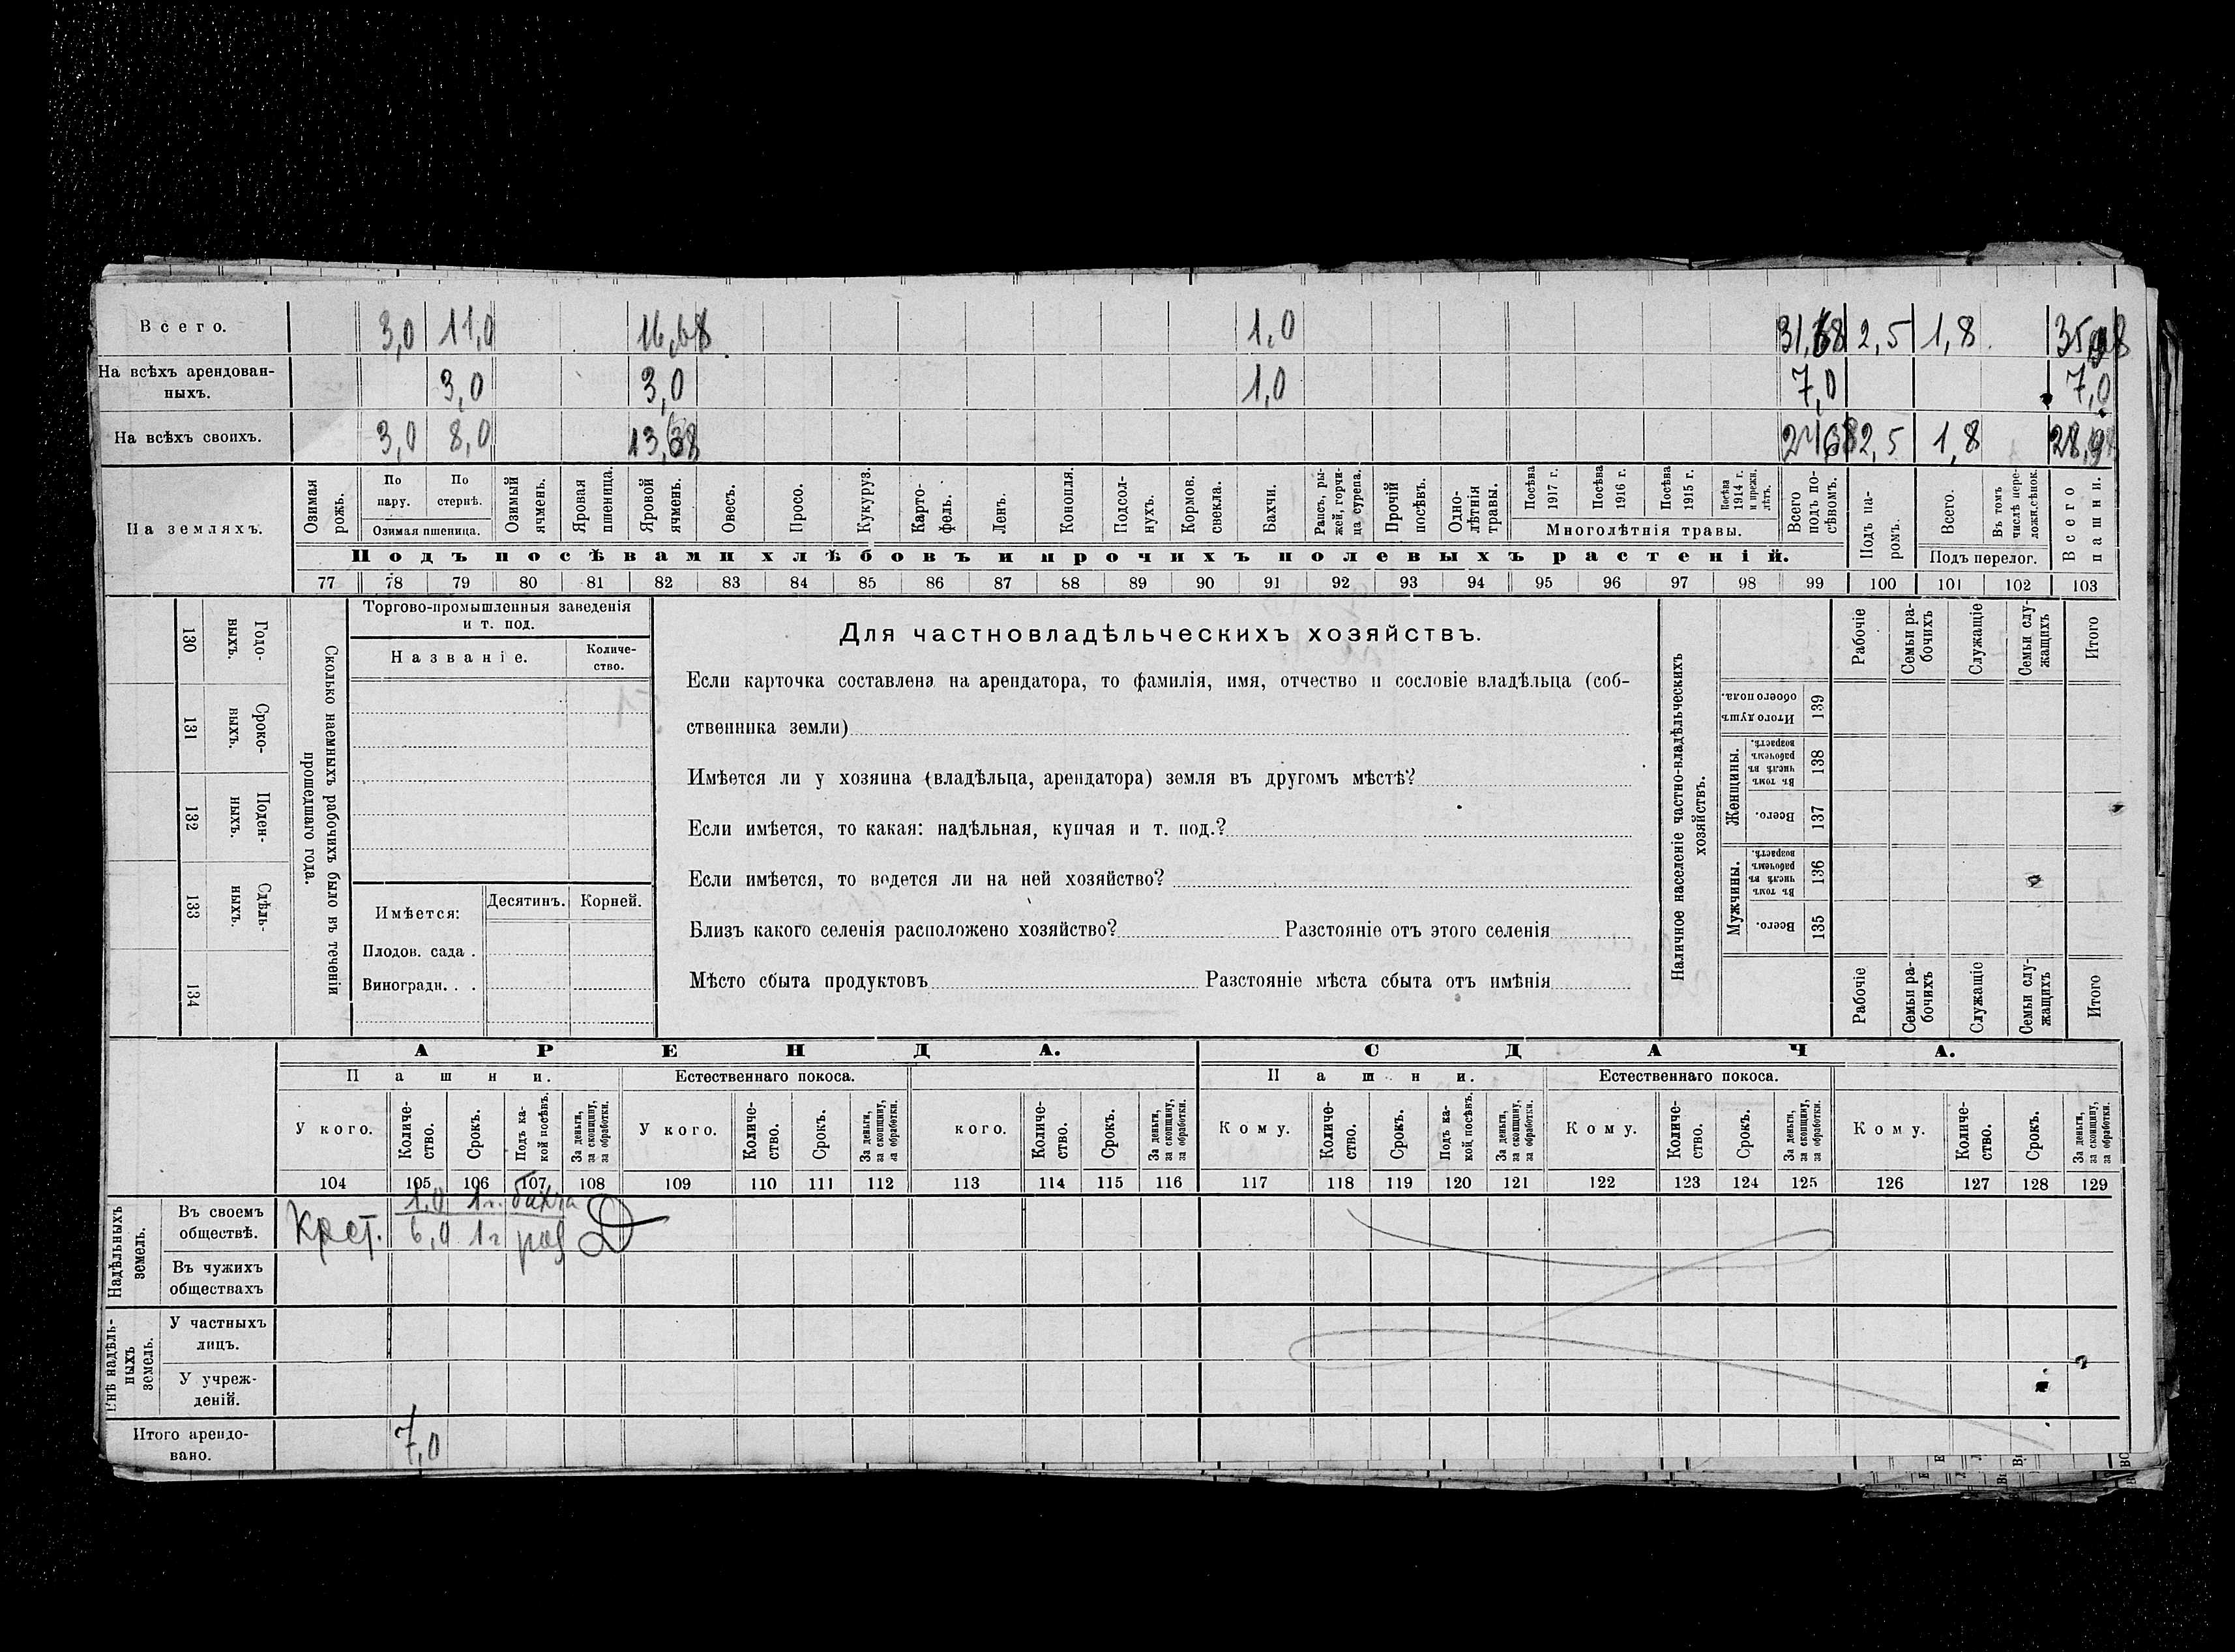 Всего. 3,0 11,0 16,68 1,0 31,68 2,5 1,8 35,98
На всѣхъ арендован-
ныхъ. 3,0 3,0 1,0 7,0 7,0
На всѣхъ своихъ. 3,0 8,0 13,68 24,68 2,5 1,8 28,98
На земляхъ.
Озимая рожь.
По пару.
По стернѣ.
Озимая пшеница.
Озимый ячмень.
Яровая пшеница.
Яровой ячмень.
Овесъ.
Просо.
Кукуруз.
Карто-
фель.
Ленъ.
Конопля.
Подсол-
нухъ.
Кормов. свекла.
Бахчи.
Рапсъ, ры-
жей, горчи-
ца сурепа.
Прочій посѣвъ.
Одно-
лѣтнія травы.
Посѣва 1917 г.
Посѣва 1916 г.
Посѣва 1915 г.
Посѣва 1914 г. и прежн. лѣтъ.
Многолѣтнія травы.
Всего подъ по-
сѣвомъ.
Подъ па-
ромъ.
Всего.
Въ томъ числѣ пере-
ложн.сѣнок.
Подъ перелог.
Всего пашни.
Подъ посѣвами хлѣбовъ и прочихъ полевыхъ растеній.
77 78 79 80 81 82 83 84 85 86 87 88 89 90 91 92 93 94 95 96 97 98 99 100 101 102 103
130 Годо-
ныхъ.
131 Сроко-
ныхъ.
132 Поден-
ныхъ.
133 Сдѣль-
ныхъ.
134
Сколько наемныхъ рабочихъ было въ теченіи
прошедшаго года.
Торгово-промышленныя заведенія
и т. под.
Названіе.
Количе-
ство.
Имѣется: Десятинъ. Корней.
Плодов. сада .
Виноградн. . .
Для частновладѣльческихъ хозяйствъ.
Если карточка составлена на арендатора, то фамилія, имя, отчество и сословіе владѣльца (соб-
ственника земли)
Имѣется ли у хозяина (владѣльца, арендатора) земля въ другомъ мѣстѣ?
Если имѣется, то какая: надѣльная, купчая и т. под.?
Если имѣется, то ведется ли на ней хозяйство?
Близъ какого селенія расположено хозяйство? Разстояніе отъ этого селенія
Мѣсто сбыта продуктовъ Разстояніе мѣста сбыта отъ имѣнія
Наличное населеніе частно-владѣльческихъ
хозяйствъ.
Рабочіе
Семьи ра-
бочихъ
Служащіе
Семьи слу-
жащихъ
Итого
Итого душ обоего пола. 139
Женщины.
Въ томъ числѣ въ рабочемъ возрастѣ. 138
Всего. 137
Мужчины.
Въ томъ числѣ въ рабочемъ возрастѣ. 136
Всего. 135
Рабочіе
Семьи ра-
бочихъ
Служащіе
Семьи слу-
жащихъ
Итого
АРЕНДА. СДАЧА.
Пашни. Естественнаго покоса. Пашни. Естественнаго покоса.
У кого.
Количе-
ство.
Срокъ.
Подъ ка-
кой посѣвъ.
За деньги, за скопщину, за обработки.
У кого.
Количе-
ство.
Срокъ.
За деньги, за скопщину, за обработки.
кого.
Количе-
ство.
Срокъ.
За деньги, за скопщину, за обработки.
Кому.
Количе-
ство.
Срокъ.
Подъ ка-
кой посѣвъ.
За деньги, за скопщину, за обработки.
Кому.
Количе-
ство.
Срокъ.
За деньги, за скопщину, за обработки.
Кому.
Количе-
ство.
Срокъ.
За деньги, за скопщину, за обработки.
104 105 106 107 108 109 110 111 112 113 114 115 116 117 118 119 120 121 122 123 124 125 126 127 128 129
Надѣльныхъ
земель.
Въ своемъ
обществѣ.
1,0 1г. бахча
Крест. 6,0 1г Д
Въ чужихъ
обществахъ
Внѣ надѣль-
ныхъ
земель.
У частныхъ
лицъ.
У учреж-
деній.
Итого арендо-
вано. 7,0